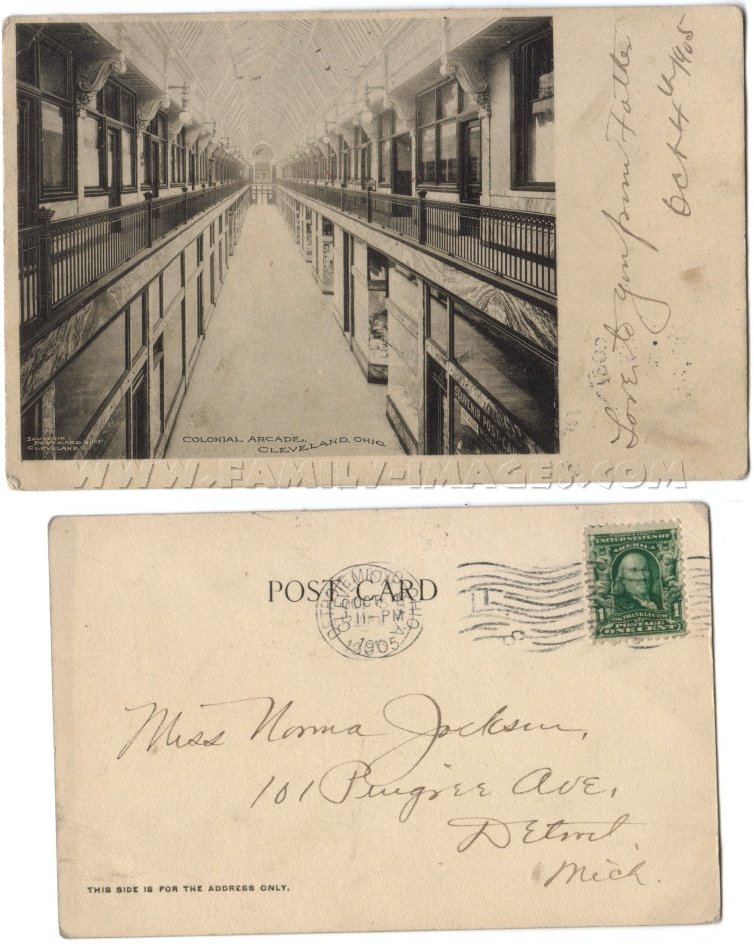 SOUVENIR
POST CARD SHOP
CLEVELAND, O.
COLONIAL ARCADE,
CLEVELAND, OHIO
Love to you from Father
Oct 4th 1905
WWW.FAMILY-IMAGES.COM
POST CARD
OCT
11-PM
1905
UNITED STATES OF
AMERICA
1 FRANKLIN 1
POSTAGE
ONE CENT
Miss Norma Jackson,
101 Pingree Ave,
Detroit,
Mich.
THIS SIDE IS FOR THE ADDRESS ONLY.